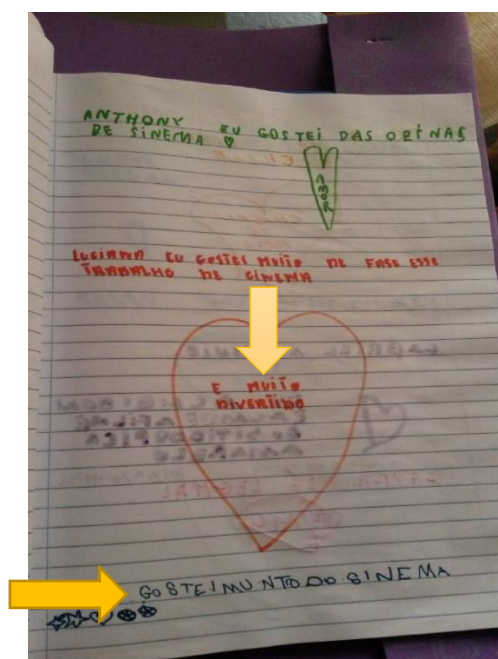 ANTHONY EU GOSTEI DAS OFINAS
DE SINEMA
AMOR
LUCIANNA EU GOSTEI MUITO DE FASE ESSE
TRABALHO DE CINEMA
E MUITO
DIVERTIDO
GOSTEI MUNTO DO SINEMA